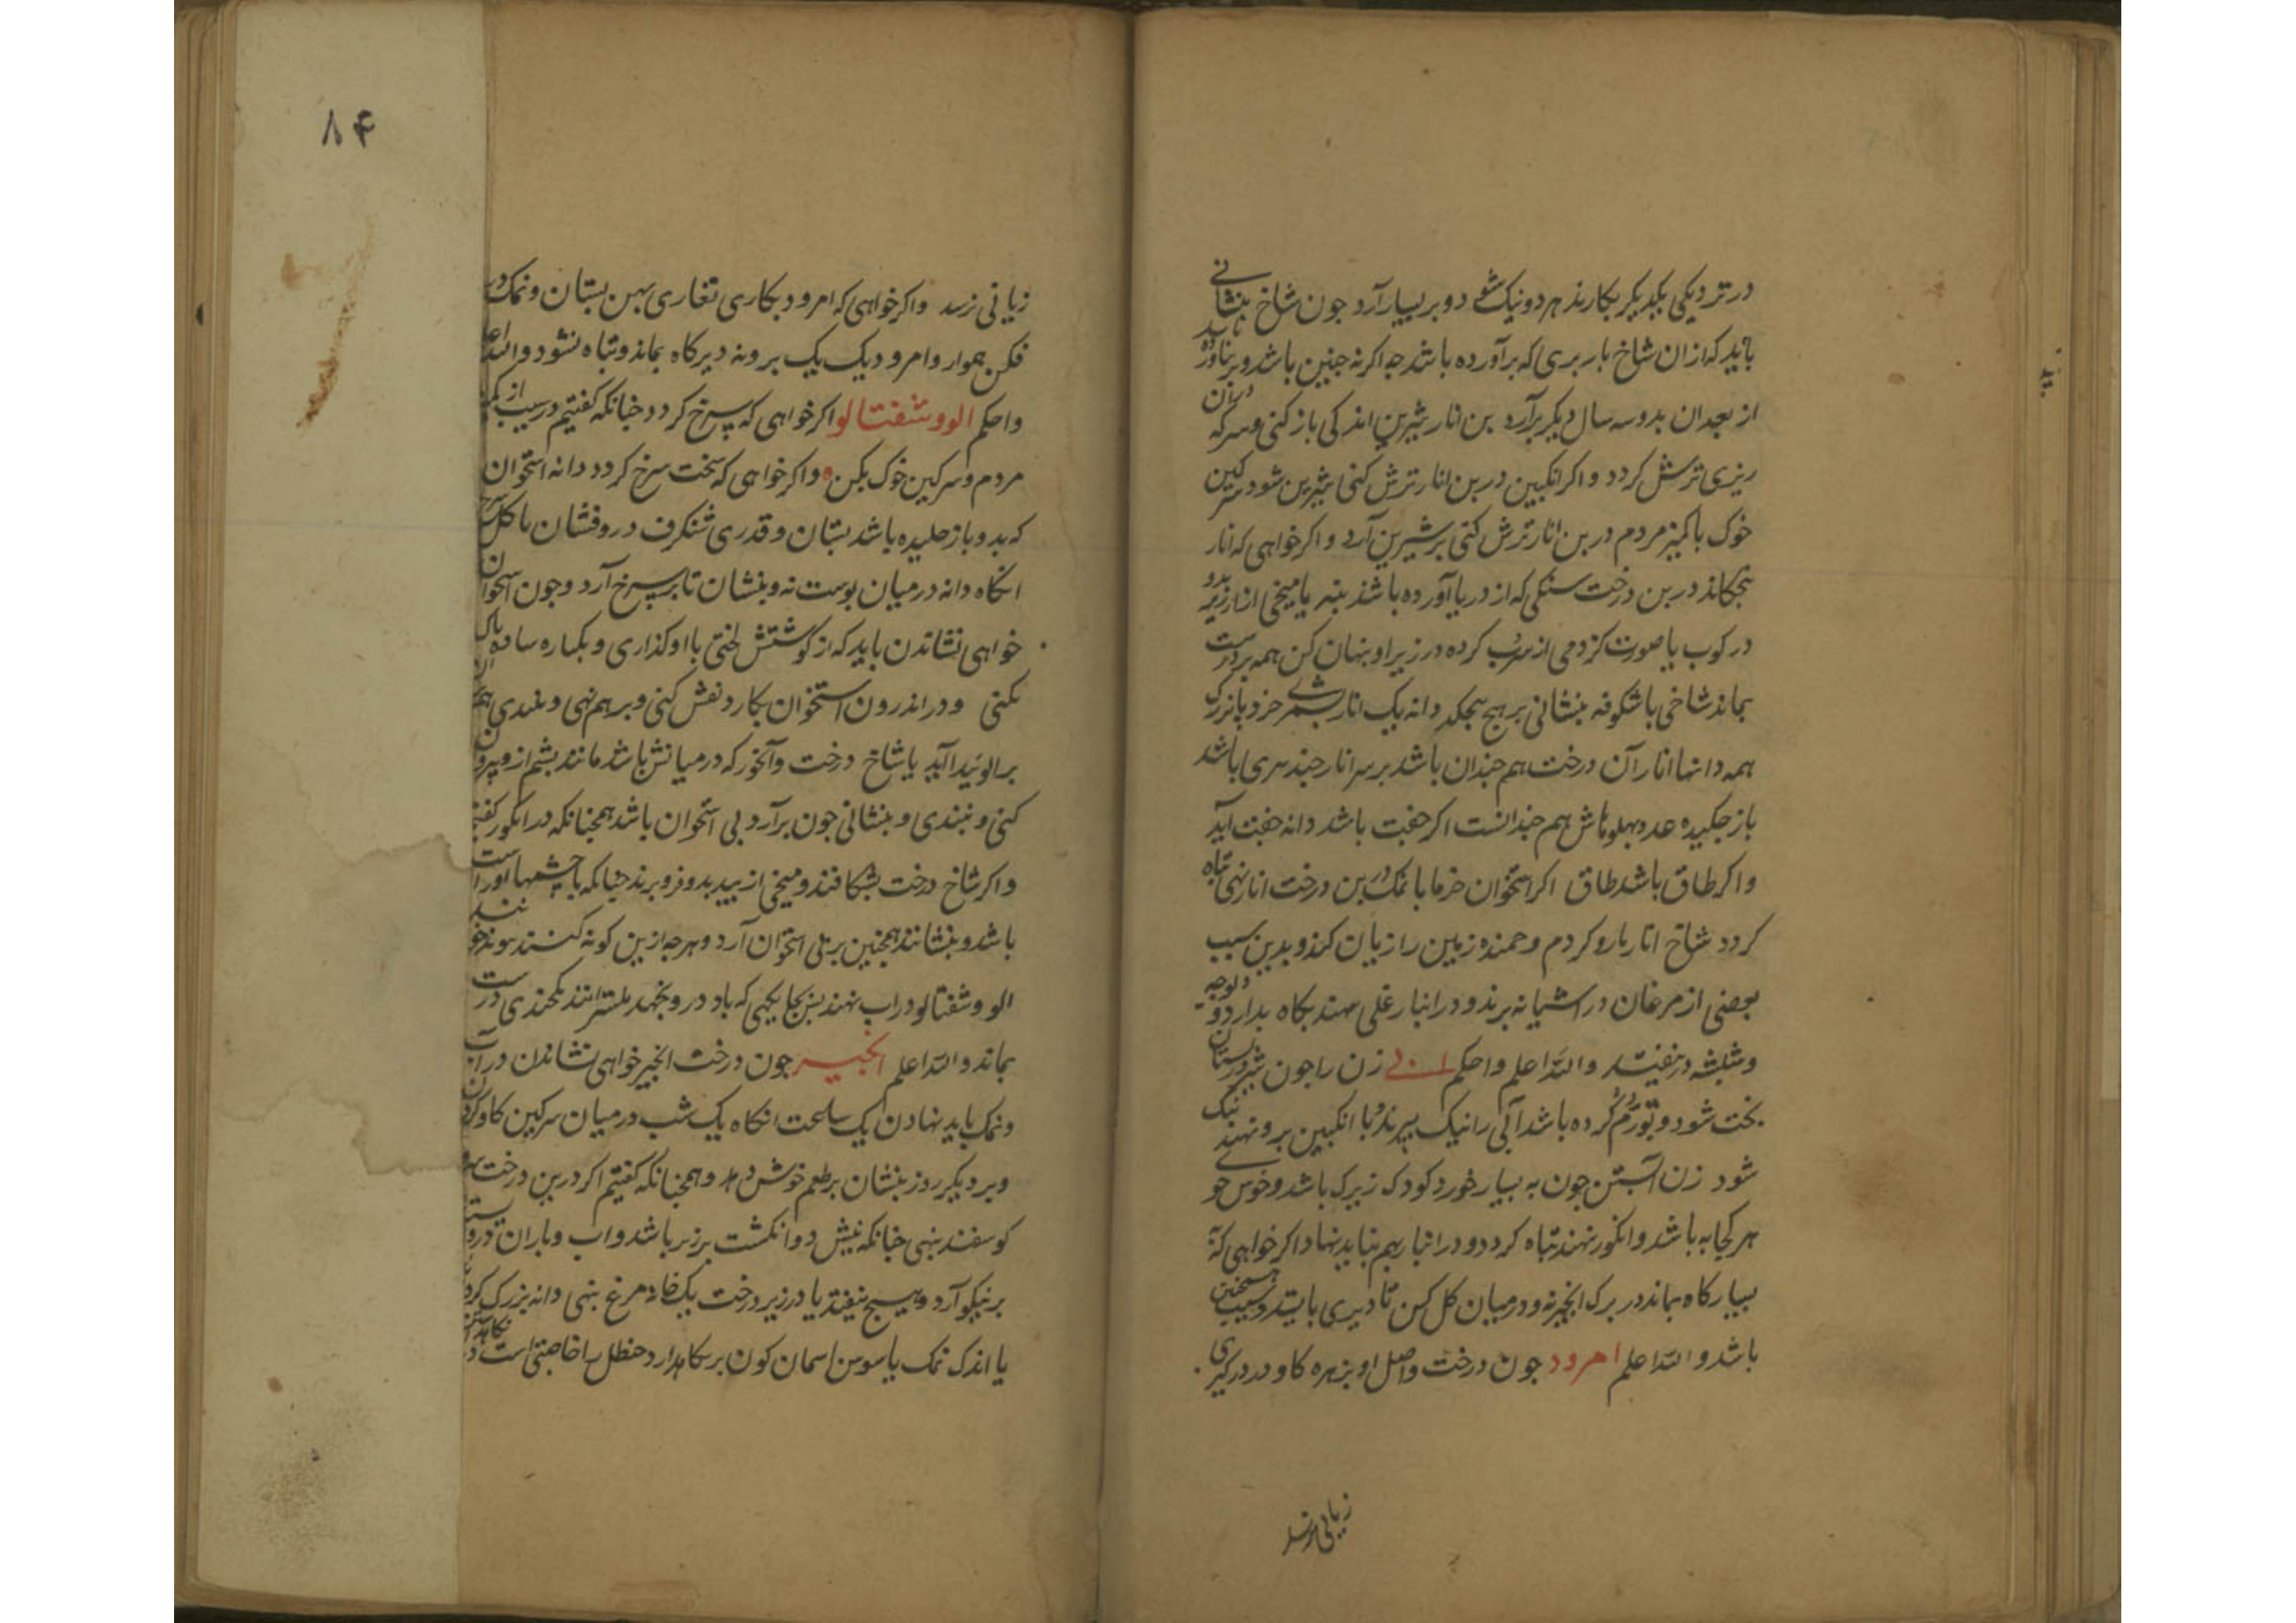 در نزدیکی یکدیگر بکارند هر دو نیک شود و بر بسیار آرد جون شاخ بنشانی
باید که ازان شاخ بار بری که برآورده باشد جه اکر نه جنین باشد و بر نیاورد
از بعد ان بدو سه سال دیکر برآرد بن انار شیرین اندکی باز کنی و سرکه دران
ریزی ترش کردد و اکر انکبین در بن انار ترش کنی شیرین شود سرکین
خوک با کمیز مردم در بن انار ترش کنی بر شیرین آرد و اکر خواهی که انار
بجکاند در بن درخت سنکی که از دریا آورده باشند بنه یا میخی از ارزیز بدو
در کوب یا صورت کزدمی از سرب کرده در زیر او بنهان کن همه بر درست
بماند شاخی با شکوفه بنشانی بر هیچ نجکد دانه یک انار بشمر خرد یا بزرک
همه دانها انار آن درخت هم جندان باشد بر سر انار جند سری باشد
باز جکیده عدد بهلوهاش هم جندانست اکر جفت باشد دانه جفت آید
و اکر طاق باشد طاق اکر استخوان خرما با نمک در بن درخت انار نهی تباه
کردد شاخ انار مار و کزدم و جمنده زمین را زیان کند و بدین سبب
بعضی از مرغان در اشیانه برند و در انبار غلی نهند بکاه بدارد و
در نیفتد والله اعلم واحکم زن را جون شیر در بستان
بخت شود و تورم کرده باشد آبی را نیک ببزند و با انکبین برو نهند نیک
شود زن آبستن جون به بسیار خورد کودک زیرک باشد و خوش خوی
هر کجا به باشد و انکور نهند تباه کردد و در انبار بهم نباید نهاد اکر خواهی که به
بسیار کاه بماند در برک انجیر نه و در میان کل کن تا دیری بایستد و سیب همجنین
باشد والله اعلم امرود جون درخت و اصل او بزهره کاو در در کیری
زیانی نرسد
۸۴
زیانی نرسد واکر خواهی که امرود بکاری تغاری بهن بستان و نمک در
فکن هموار و امرود یک یک برو نه دیرکاه بماند و تباه نشود والله اعلم
واحکم الو و شفتالو اکر خواهی که سرخ کردد جنانکه کفتیم در سیب از کمیز
مردم و سرکین خوک بکن و اکر خواهی که سخت سرخ کردد دانه استخوان
که بدو باز جلیده باشد بستان و قدری شنکرف درو فشان با کل سرخ
انکاه دانه در میان بوست نه و بنشان تا بر سرخ آرد و جون استخوان
خواهی نشاندن باید که از کوشتش لختی با او کذاری و یکباره ساده باک
نکنی و در اندرون استخوان بکارد نقش کنی و بر هم نهی و ببندی
بر الو بیدا آید یا شاخ درخت و آنجوز که در میانش باشد مانند بشم ازو بیرون
کنی و ببندی و بنشانی جون برآرد بی استخوان باشد همجنانکه در انکور کفتیم
و اکر شاخ درخت بشکافند و میخی از بید بدو فرو برند جنانکه با جشمها او راست
باشد و بنشانند همجنین بر بی استخوان آرد و هرجه ازین کونه کنند
الو و شفتالو در اب نهند بس بجایکهی که باد درو بجهد بکسترانند درست
بماند والله اعلم انجیر جون درخت انجیر خواهی نشاندن در آب
و نمک باید نهادن یک ساعت انکاه یک شب در میان سرکین کاو کردن
و بر دیکر روز بنشان بر طعم خوش دهد و همجنانکه کفتیم اکر در بن درخت
کوسفند بنهی جنانکه نیش دو انکشت بر زبر باشد و اب و باران درو
بر نیکو آرد و هیچ نیفتد یا در زیر درخت یک خایه مرغ بنهی دانه بزرک کردد
یا اندک نمک یا سوسن اسمان کون بر نکاه دارد حنظل را خاصیتی است در